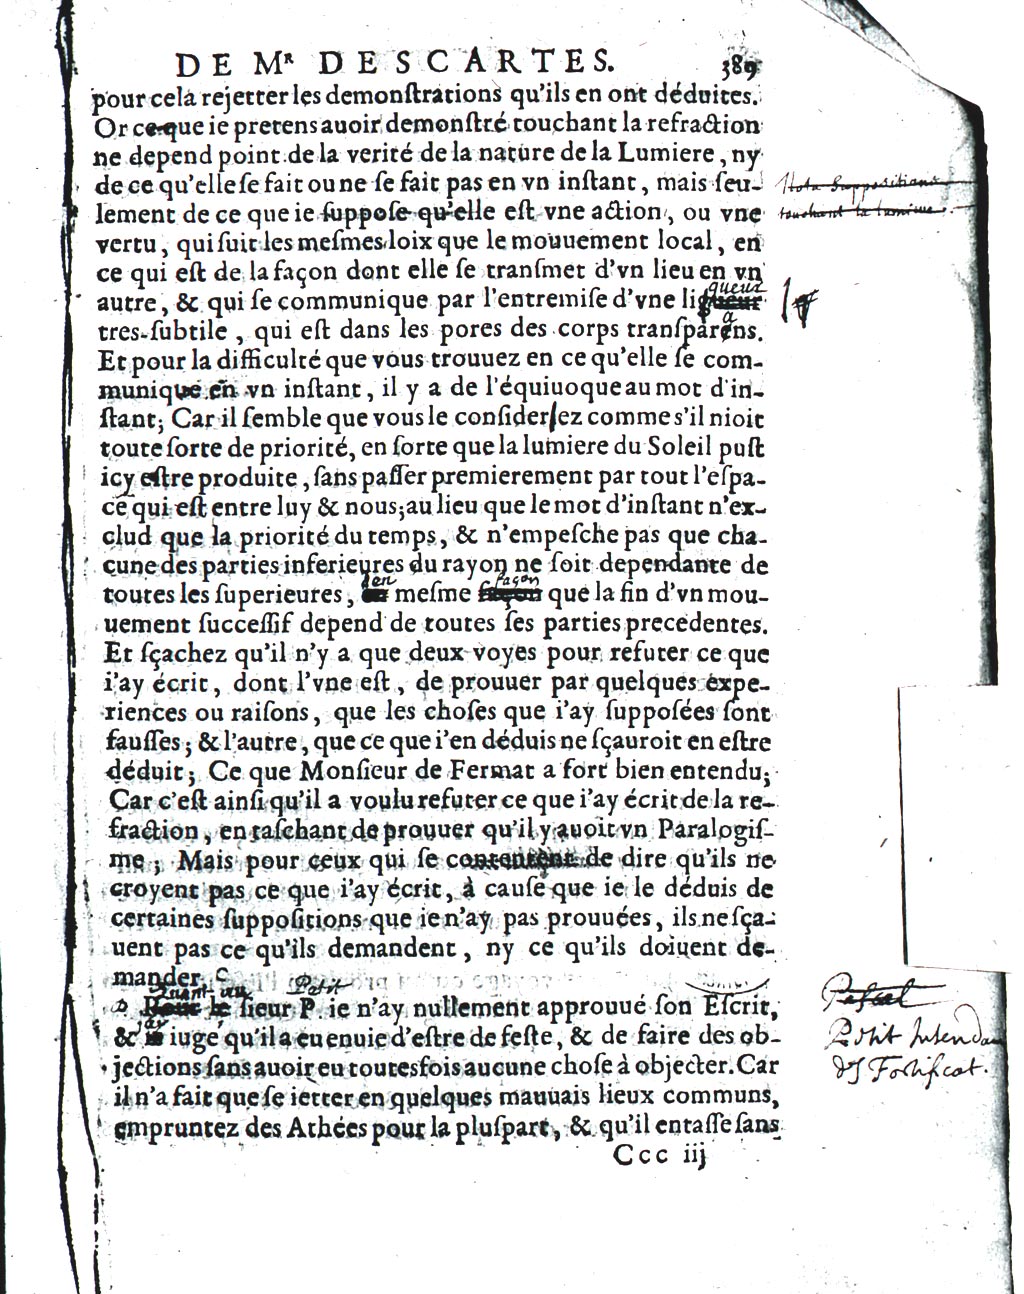 DE Mʀ DESCARTES. 389
pour cela rejetter les demonſtrations qu'ils en ont déduites.
Or ce que ie pretens auoir demonſtré touchant la refraction
ne depend point de la verité de la nature de la Lumiere, ny
de ce qu'elle ſe fait ou ne ſe fait pas en vn inſtant, mais ſeu-
Nota Suppositions
lement de ce que ie ſuppoſe qu'elle eſt vne action, ou vne
touchant la lumiere.
vertu, qui ſuit les meſmes loix que le mouuement local, en
ce qui eſt de la façon dont elle ſe tranſmet d'vn lieu en vn
queur
autre, & qui ſe communique par l'entremiſe d'vne ligueur
a
tres-ſubtile, qui eſt dans les pores des corps tranſparens.
Et pour la difficulté que vous trouuez en ce qu'elle ſe com-
munique en vn inſtant, il y a de l'équiuoque au mot d'in-
ſtant; Car il ſemble que vous le conſideriez comme s'il nioit
toute ſorte de priorité, en ſorte que la lumiere du Soleil puſt
icy eſtre produite, ſans paſſer premierement par tout l'eſpa-
ce qui eſt entre luy & nous; au lieu que le mot d'inſtant n'ex-
clud que la priorité du temps, & n'empeſche pas que cha-
cune des parties inferieures du rayon ne ſoit dependante de
en façon
toutes les ſuperieures, meſme façon que la fin d'vn mou-
uement ſucceſſif depend de toutes ſes parties precedentes.
Et ſçachez qu'il n'y a que deux voyes pour refuter ce que
i'ay écrit, dont l'vne eſt, de prouuer par quelques expe-
riences ou raiſons, que les choſes que i'ay ſuppoſées ſont
fauſſes; & l'autre, que ce que i'en déduis ne ſçauroit en eſtre
déduit; Ce que Monſieur de Fermat a fort bien entendu;
Car c'eſt ainſi qu'il a voulu refuter ce que i'ay écrit de la re-
fraction, en taſchant de prouuer qu'il y auoit vn Paralogiſ-
me; Mais pour ceux qui ſe contentent de dire qu'ils ne
croyent pas ce que i'ay écrit, à cauſe que ie le déduis de
certaines ſuppoſitions que ie n'ay pas prouuées, ils ne ſça-
uent pas ce qu'ils demandent, ny ce qu'ils doiuent de-
mander.
Quant au Petit
Pour le ſieur P. ie n'ay nullement approuué ſon Eſcrit,
Pascal
Petit Intendan
ay
& iugé qu'il a eu enuie d'eſtre de feſte, & de faire des ob-
des Fortificat.
jections ſans auoir eu toutesfois aucune choſe à objecter. Car
il n'a fait que ſe ietter en quelques mauuais lieux communs,
empruntez des Athées pour la pluſpart, & qu'il entaſſe ſans
Ccc iij